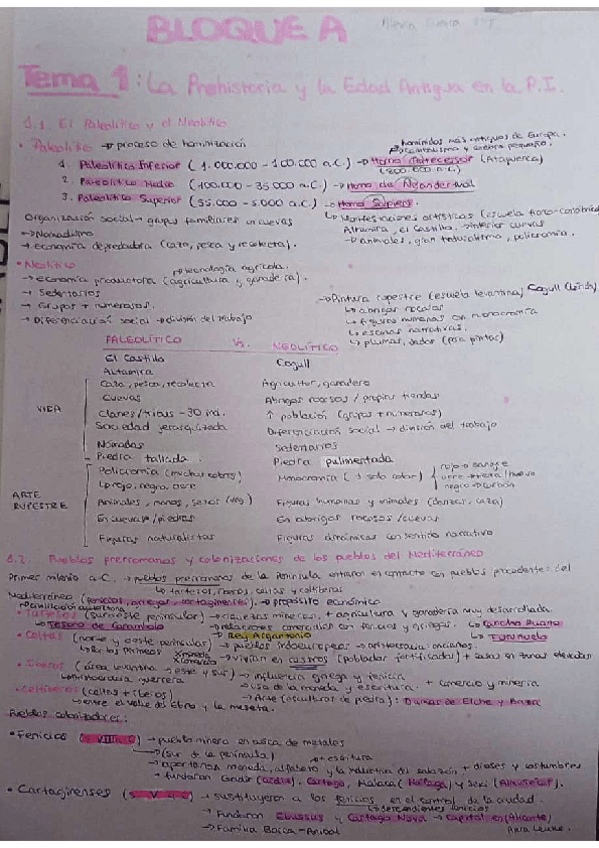 BLOQUE A
Tema 1: La Prehistoria y la Edad Antigua en la P.I.
1.1. El Paleolítico y el Neolítico
• Paleolítico → proceso de hominización
homínidos más antiguos de Europa.
1. Paleolítico Inferior (1.000.000 - 100.000 a.C.) → Homo Antecessor (Atapuerca)
(800.000 a.C.)
2. Paleolítico Medio (100.000 - 35.000 a.C.) → Homo de Neandertal
3. Paleolítico Superior (35.000 - 5.000 a.C.) → Homo Sapiens
Organización social → grupos familiares en cuevas
↳ Manifestaciones artísticas (escuela franco-cantábrica)
Altamira, el Castillo. → interior cuevas
→ Nomadismo
→ animales, gran naturalismo, policromía.
→ economía depredadora (caza, pesca y recolecta).
• Neolítico
→ tecnología agrícola.
→ economía productora (agricultura y ganadería).
→ Sedentarios
→ Pintura rupestre (escuela levantina) Cogull (Lérida)
↳ abrigos rocosos
→ Grupos + numerosos.
↳ figuras humanas con monocromía
↳ escenas narrativas.
→ Diferenciación social → división del trabajo
↳ plumas, dedos (para pintar)
PALEOLÍTICO Vs. NEOLÍTICO
El Castillo Cogull
Altamira
Caza, pesca, recolecta Agricultor, ganadero
Cuevas Abrigos rocosos / propias tiendas
VIDA
Clanes/tribus - 30 ind. ↑ población (grupos + numerosos)
Sociedad jerarquizada Diferenciación social → división del trabajo
Nómadas Sedentarios
Piedra tallada Piedra pulimentada
Policromía (muchos colores) Monocromía (1 solo color)
rojo → sangre
Lo rojo, negro, ocre
negro → carbón
ARTE RUPESTRE
Animales, manos, sexos (veg.) Figuras humanas y animales (danzas, caza)
En cuevas/piedras En abrigos rocosos/cuevas
Figuras naturalistas Figuras dinámicas con sentido narrativo
1.2. Pueblos prerromanos y colonizaciones de los pueblos del Mediterráneo
Primer milenio a.C. → pueblos prerromanos de la Península entraron en contacto con pueblos procedentes del
↳ tartesios, íberos, celtas y celtíberos
Mediterráneo (fenicios, griegos, cartagineses). → propósito económico
• Tartesos (suroeste peninsular) → riquezas mineras. + agricultura y ganadería muy desarrollada.
↳ Tesoro de Carambolo
→ relaciones comerciales con fenicios y griegos. ↳ Cancho Ruano
↳ Rey Argantonio ↳ Turuñuelo
• Celtas (norte y oeste peninsular) → pueblos indoeuropeos → aristocracia ancianos.
X moneda
X comercio
→ vivían en castros (poblados fortificados) + casas en zonas elevadas
• Íberos (área levantina → este y sur) → influencia griega y fenicia
↳ Aristocracia guerrera
→ uso de la moneda y escritura. + comercio y minería
• Celtíberos (celtas + íberos)
→ Arte (esculturas de piedra): Damas de Elche y Baza
↳ entre el valle del Ebro y la meseta.
Pueblos colonizadores:
• Fenicios (s. VIII a.C) → pueblo minero en busca de metales
→ (sur de la península)
→ escritura
→ aportaron moneda, alfabeto y la industria del salazón + dioses y costumbres
→ fundaron Gandir (Cádiz), Cartago, Malaca (Málaga) y Sexi (Almuñécar).
• Cartaginenses (s. V a.C) → sustituyeron a los fenicios en el control de la ciudad.
↳ descendientes fenicios
→ Fundaron Ebussus y Cartago Nova → Capital en (Alicante)
→ Familia Barca - Aníbal